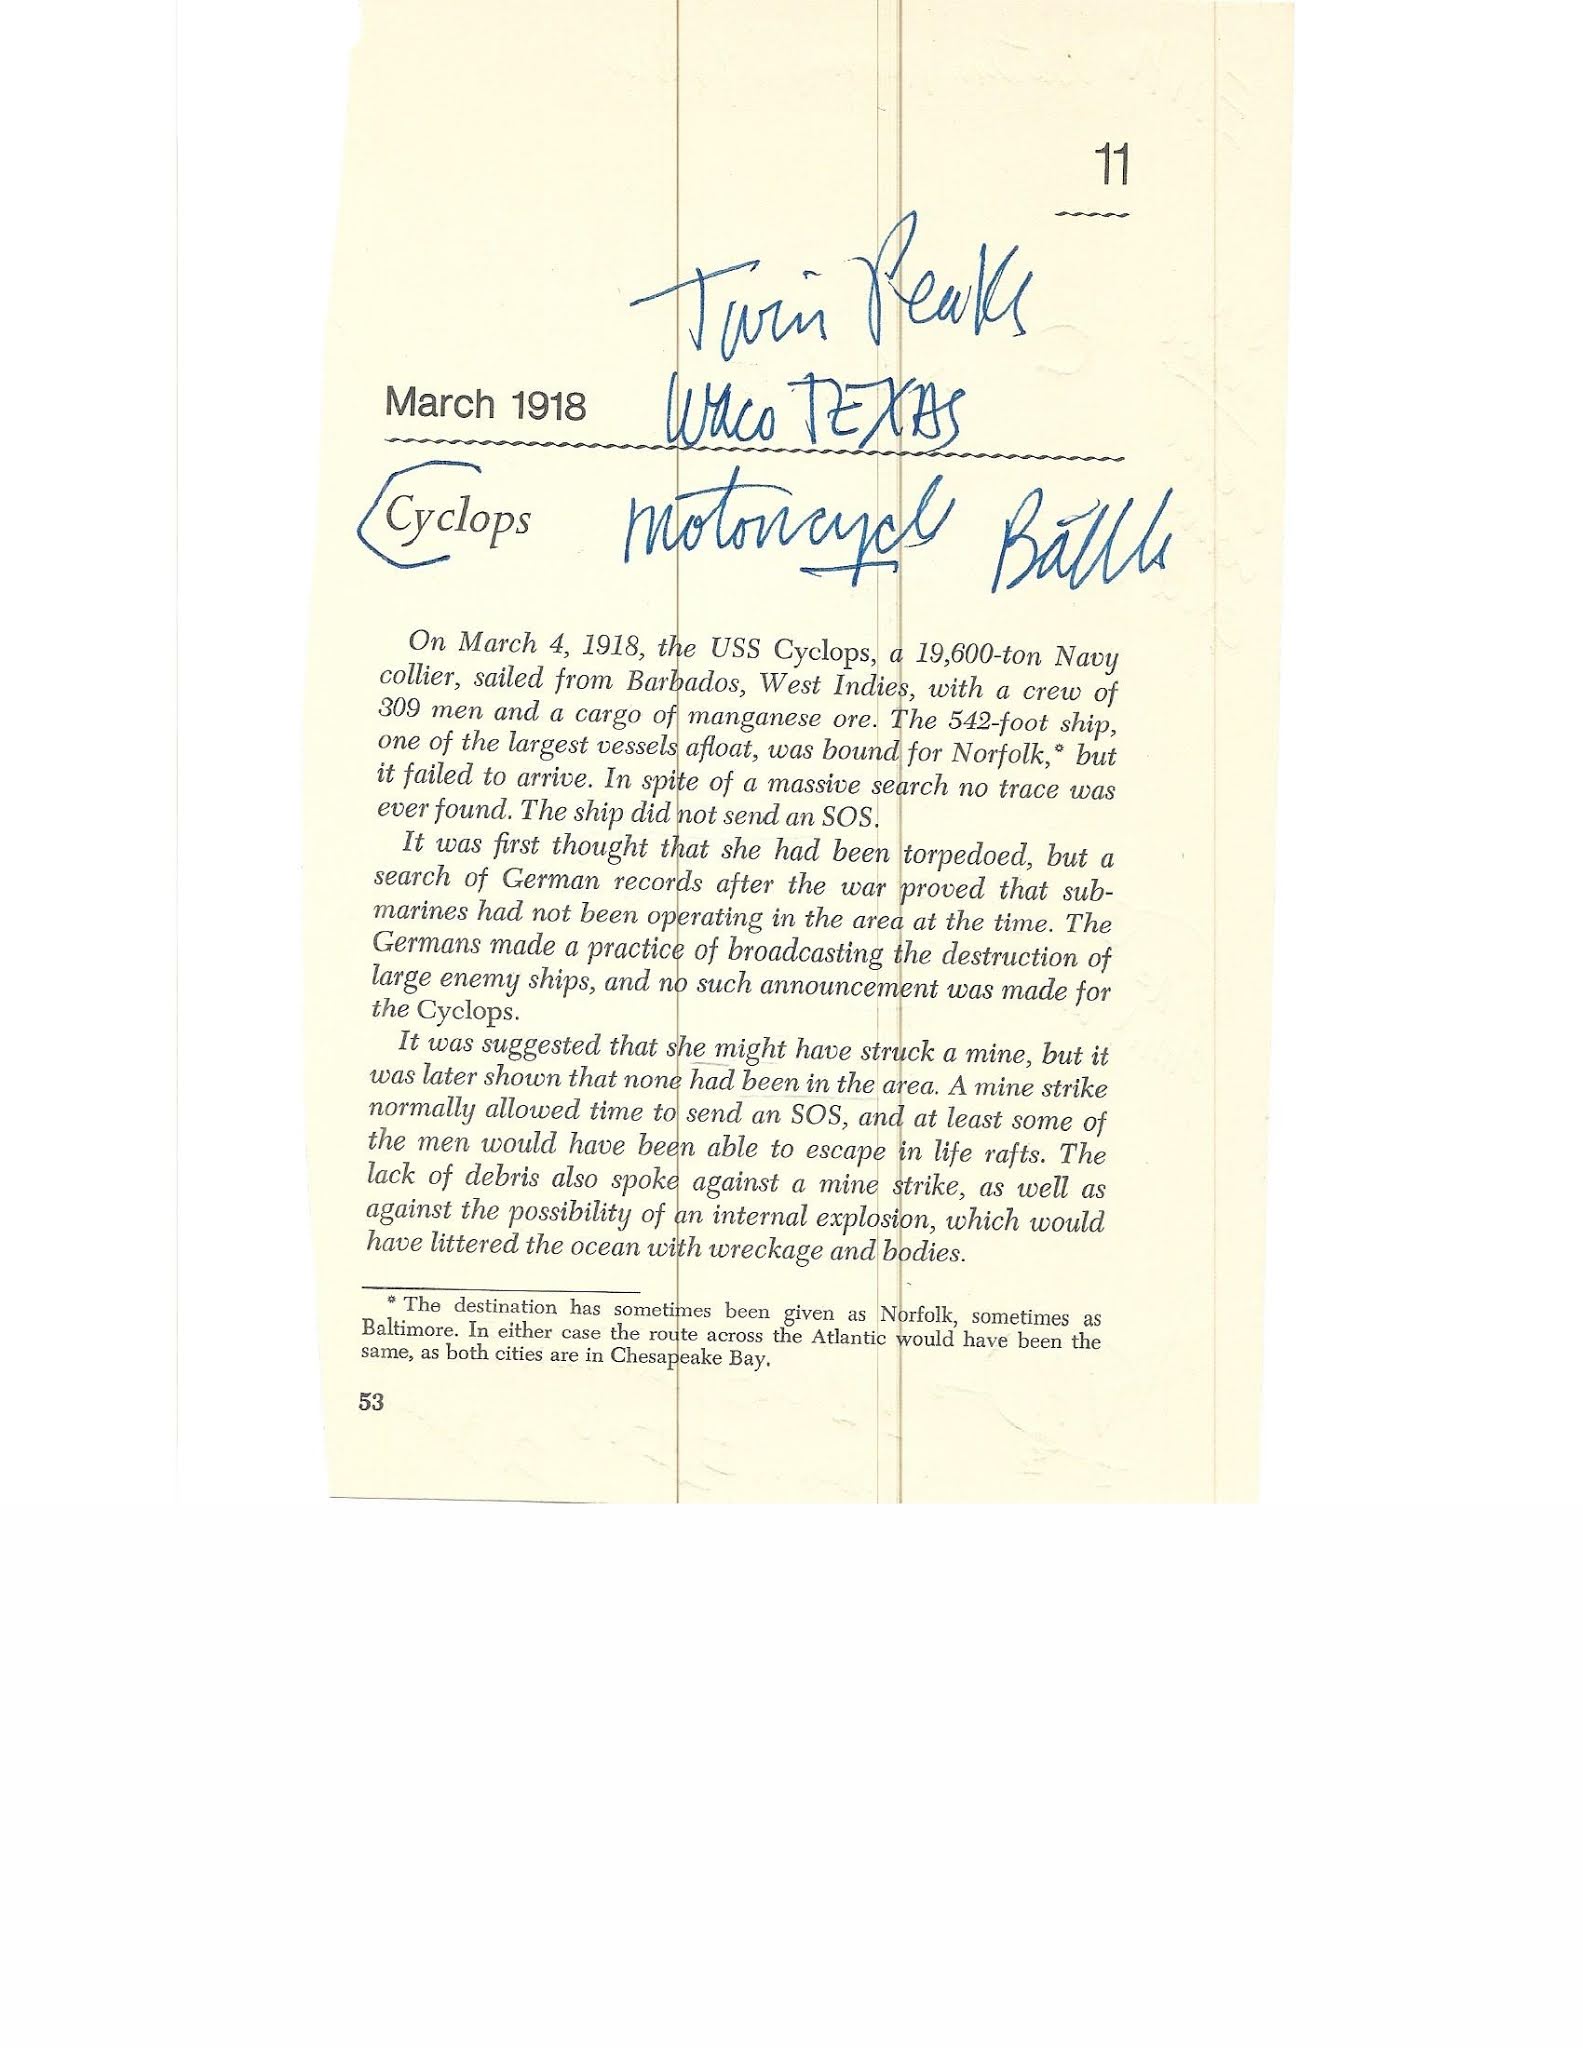 11
Twin Peaks
Waco TEXAS
March 1918
Cyclops
Motorcycl Battle
On March 4, 1918, the USS Cyclops, a 19,600-ton Navy
collier, sailed from Barbados, West Indies, with a crew of
309 men and a cargo of manganese ore. The 542-foot ship,
one of the largest vessels afloat, was bound for Norfolk,* but
it failed to arrive. In spite of a massive search no trace was
ever found. The ship did not send an SOS.
It was first thought that she had been torpedoed, but a
search of German records after the war proved that sub-
marines had not been operating in the area at the time. The
Germans made a practice of broadcasting the destruction of
large enemy ships, and no such announcement was made for
the Cyclops.
It was suggested that she might have struck a mine, but it
was later shown that none had been in the area. A mine strike
normally allowed time to send an SOS, and at least some of
the men would have been able to escape in life rafts. The
lack of debris also spoke against a mine strike, as well as
against the possibility of an internal explosion, which would
have littered the ocean with wreckage and bodies.
* The destination has sometimes been given as Norfolk, sometimes as
Baltimore. In either case the route across the Atlantic would have been the
same, as both cities are in Chesapeake Bay.
53